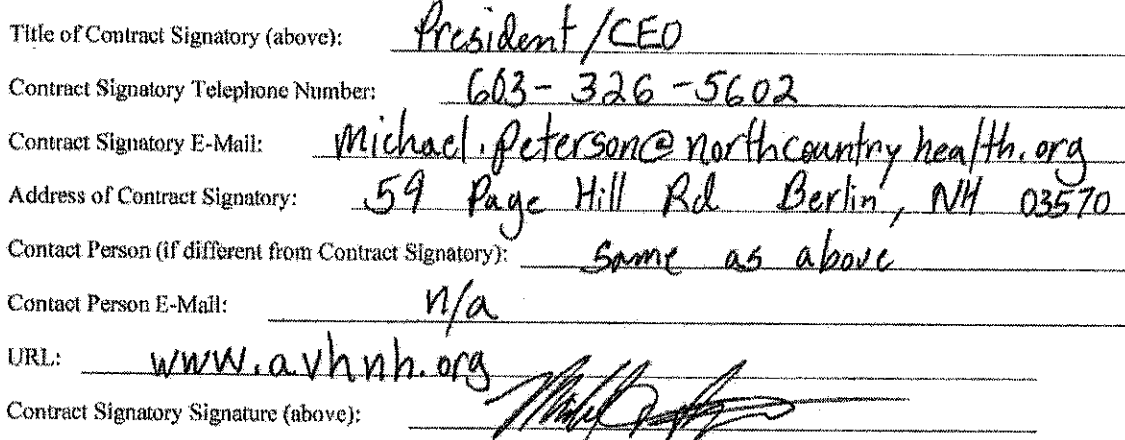 Title of Contract Signatory (above): President/CEO
Contract Signatory Telephone Number: 603-326-5602
Contract Signatory E-Mail: michael.peterson@northcountryhealth.org
Address of Contract Signatory: 59 Page Hill Rd Berlin, NH 03570
Contact Person (if different from Contract Signatory): Same as above
Contact Person E-Mail: n/a
URL: www.avhnh.org
Contract Signatory Signature (above):